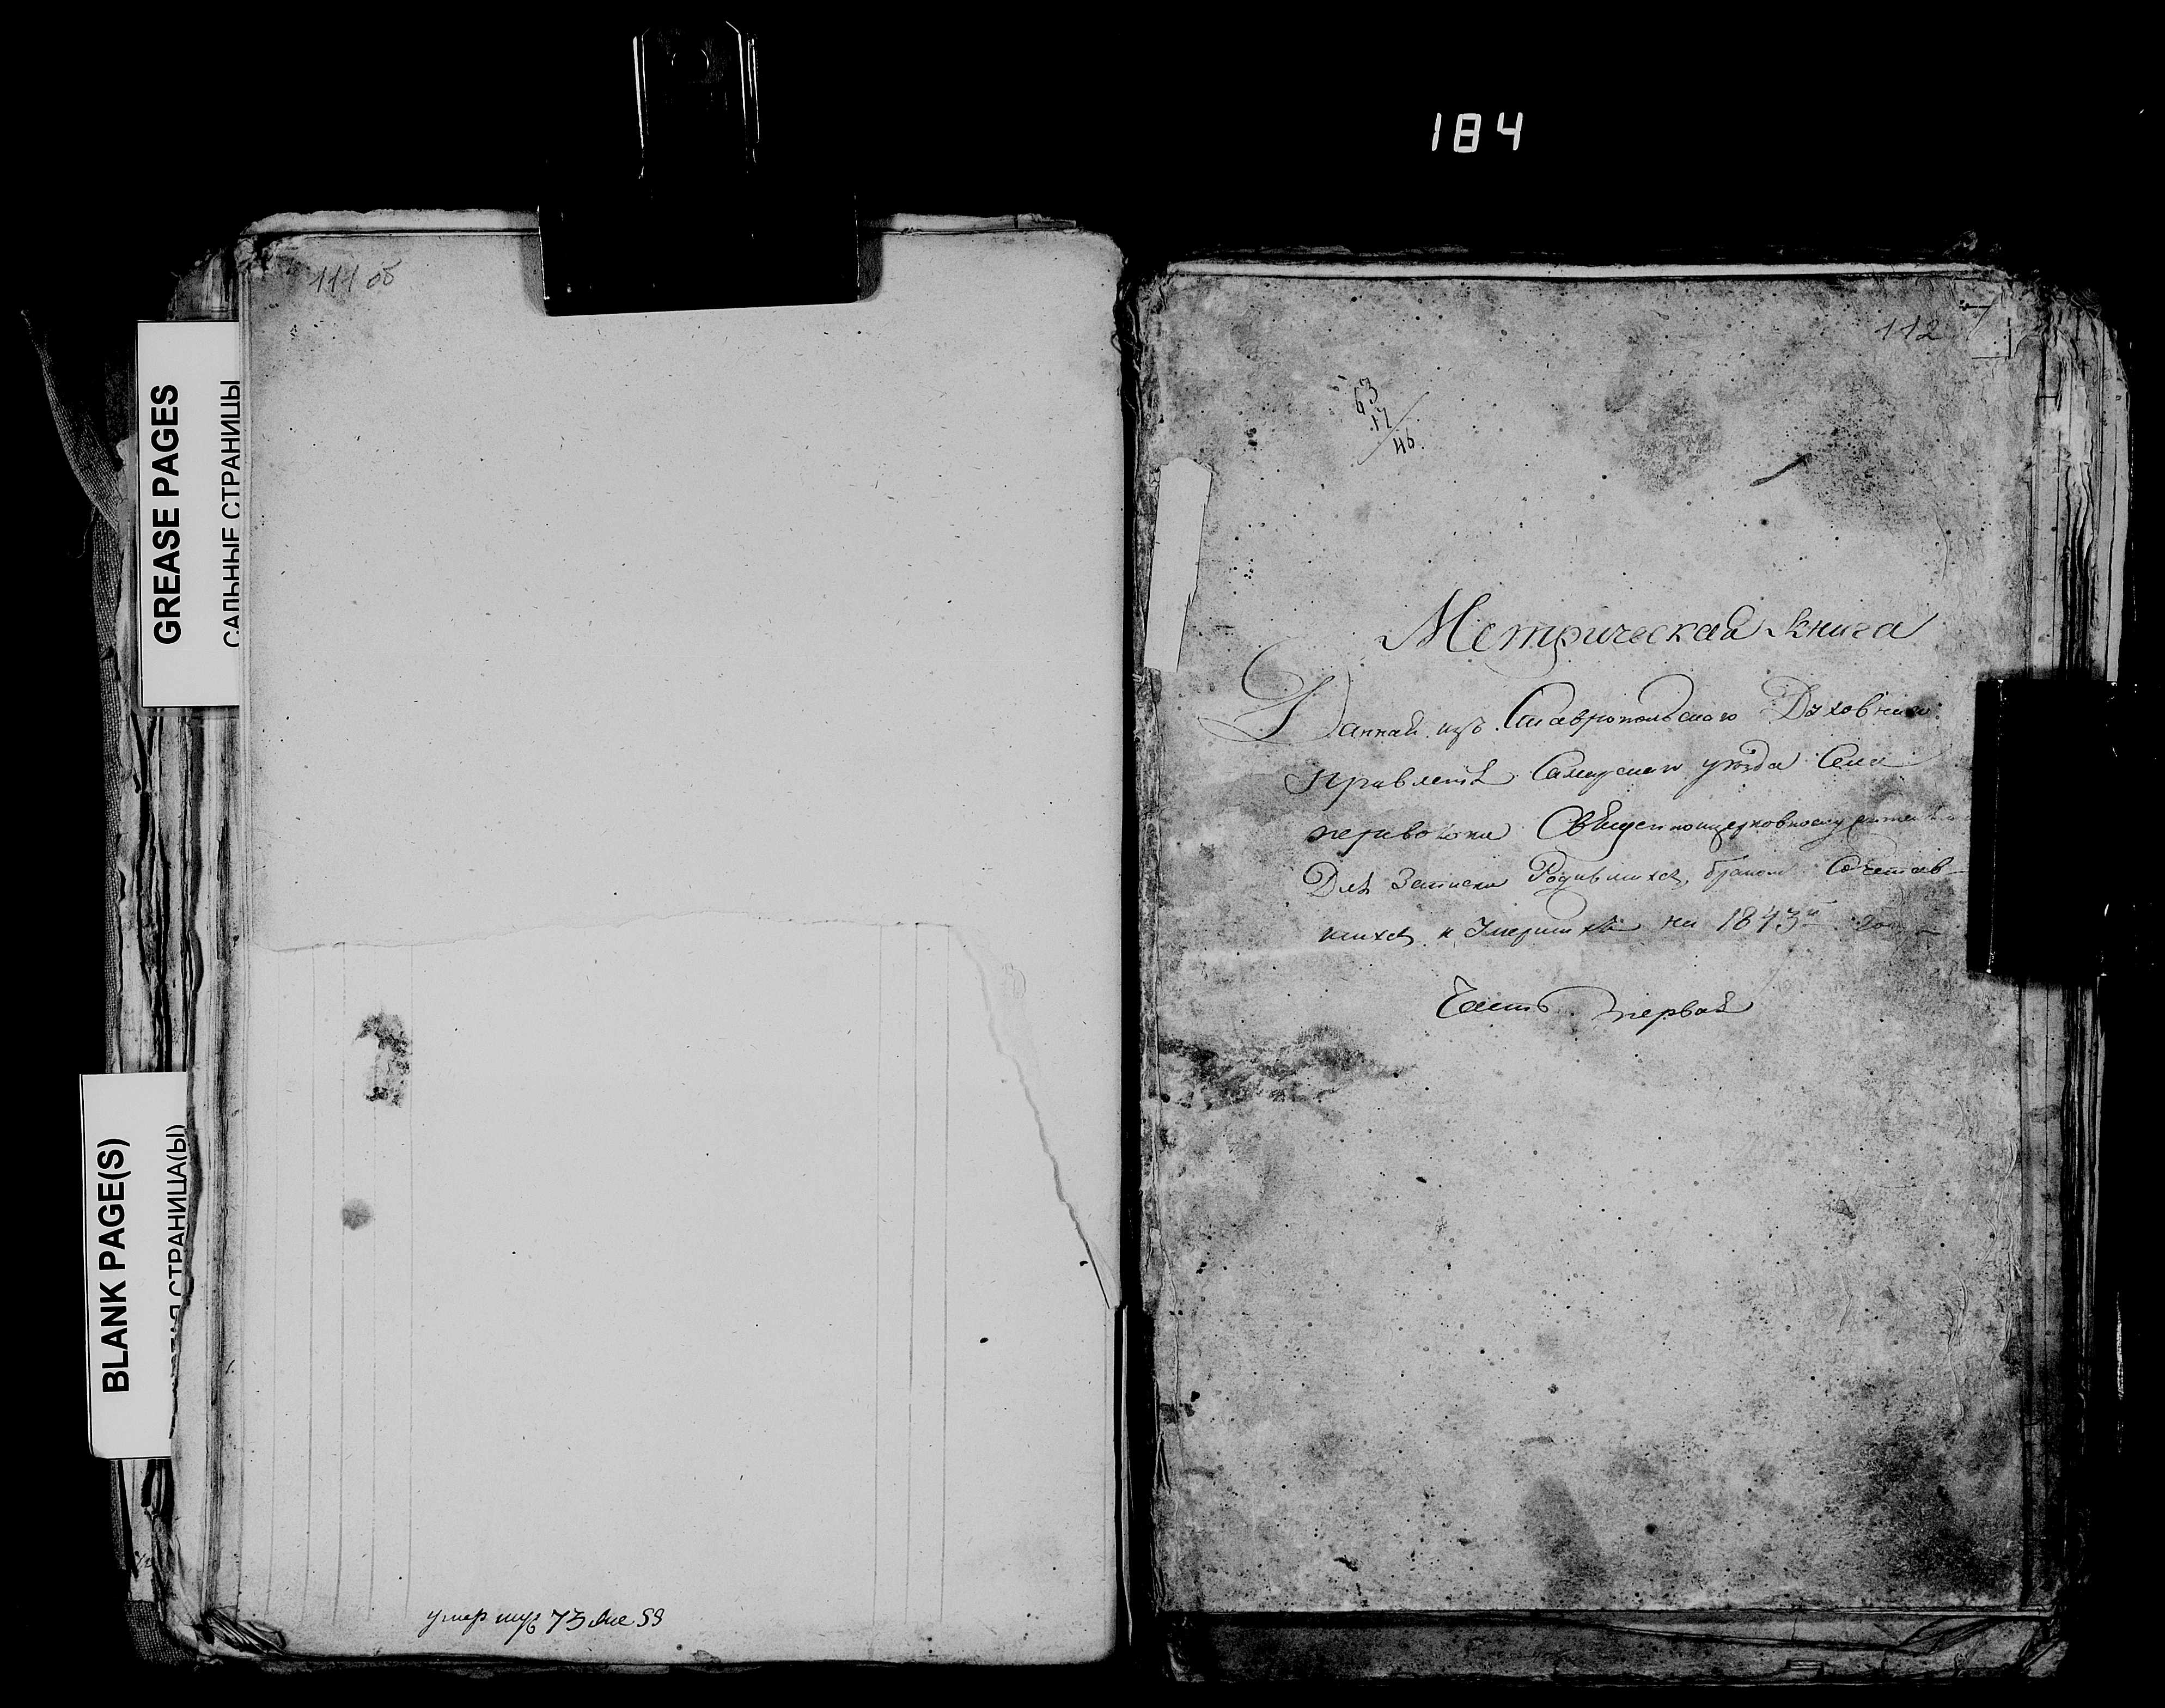 184
111 об
GREASE PAGES
САЛЬНЫЕ СТРАНИЦЫ
BLANK PAGE(S)
СТРАНИЦА(Ы)
умер муж 73 жен 59
112
7
63
17
46.
Метрическая книга
Данная изъ Ставропольского Духовнаго
правленія Самарского уѣзда Села
Священноцерковнослужителямъ
Для Записки Родившихся, бракомъ Сочетав-
шихся и Умершихъ на 1843й годъ
Часть первая